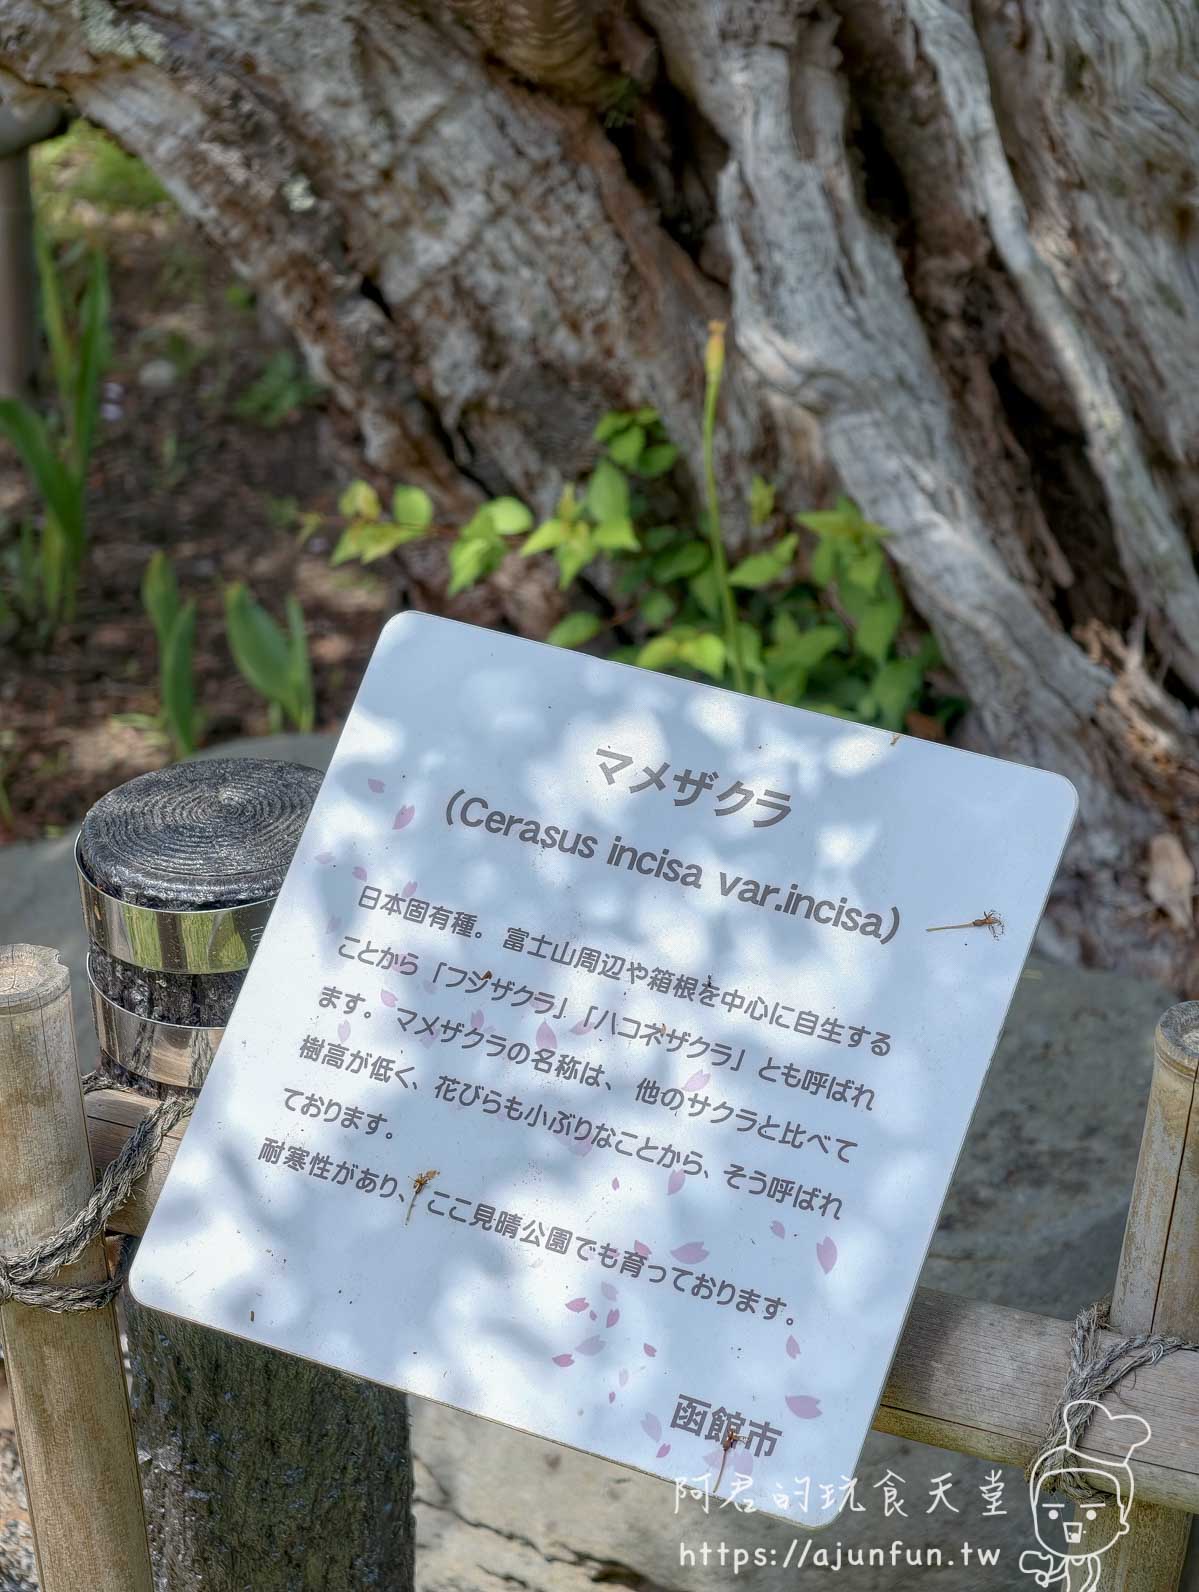 マメザクラ
(Cerasus incisa var.incisa)
日本固有種。富士山周辺や箱根を中心に自生する
ことから「フジザクラ」「ハコネザクラ」とも呼ばれ
ます。マメザクラの名称は、他のサクラと比べて
樹高が低く、花びらも小ぶりなことから、そう呼ばれ
ております。
耐寒性があり、ここ見晴公園でも育っております。
函館市
阿君的玩食天堂
https://ajunfun.tw